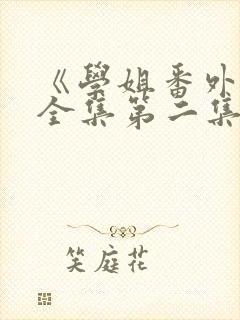 《学姐番外
全集第二集
笑庭花